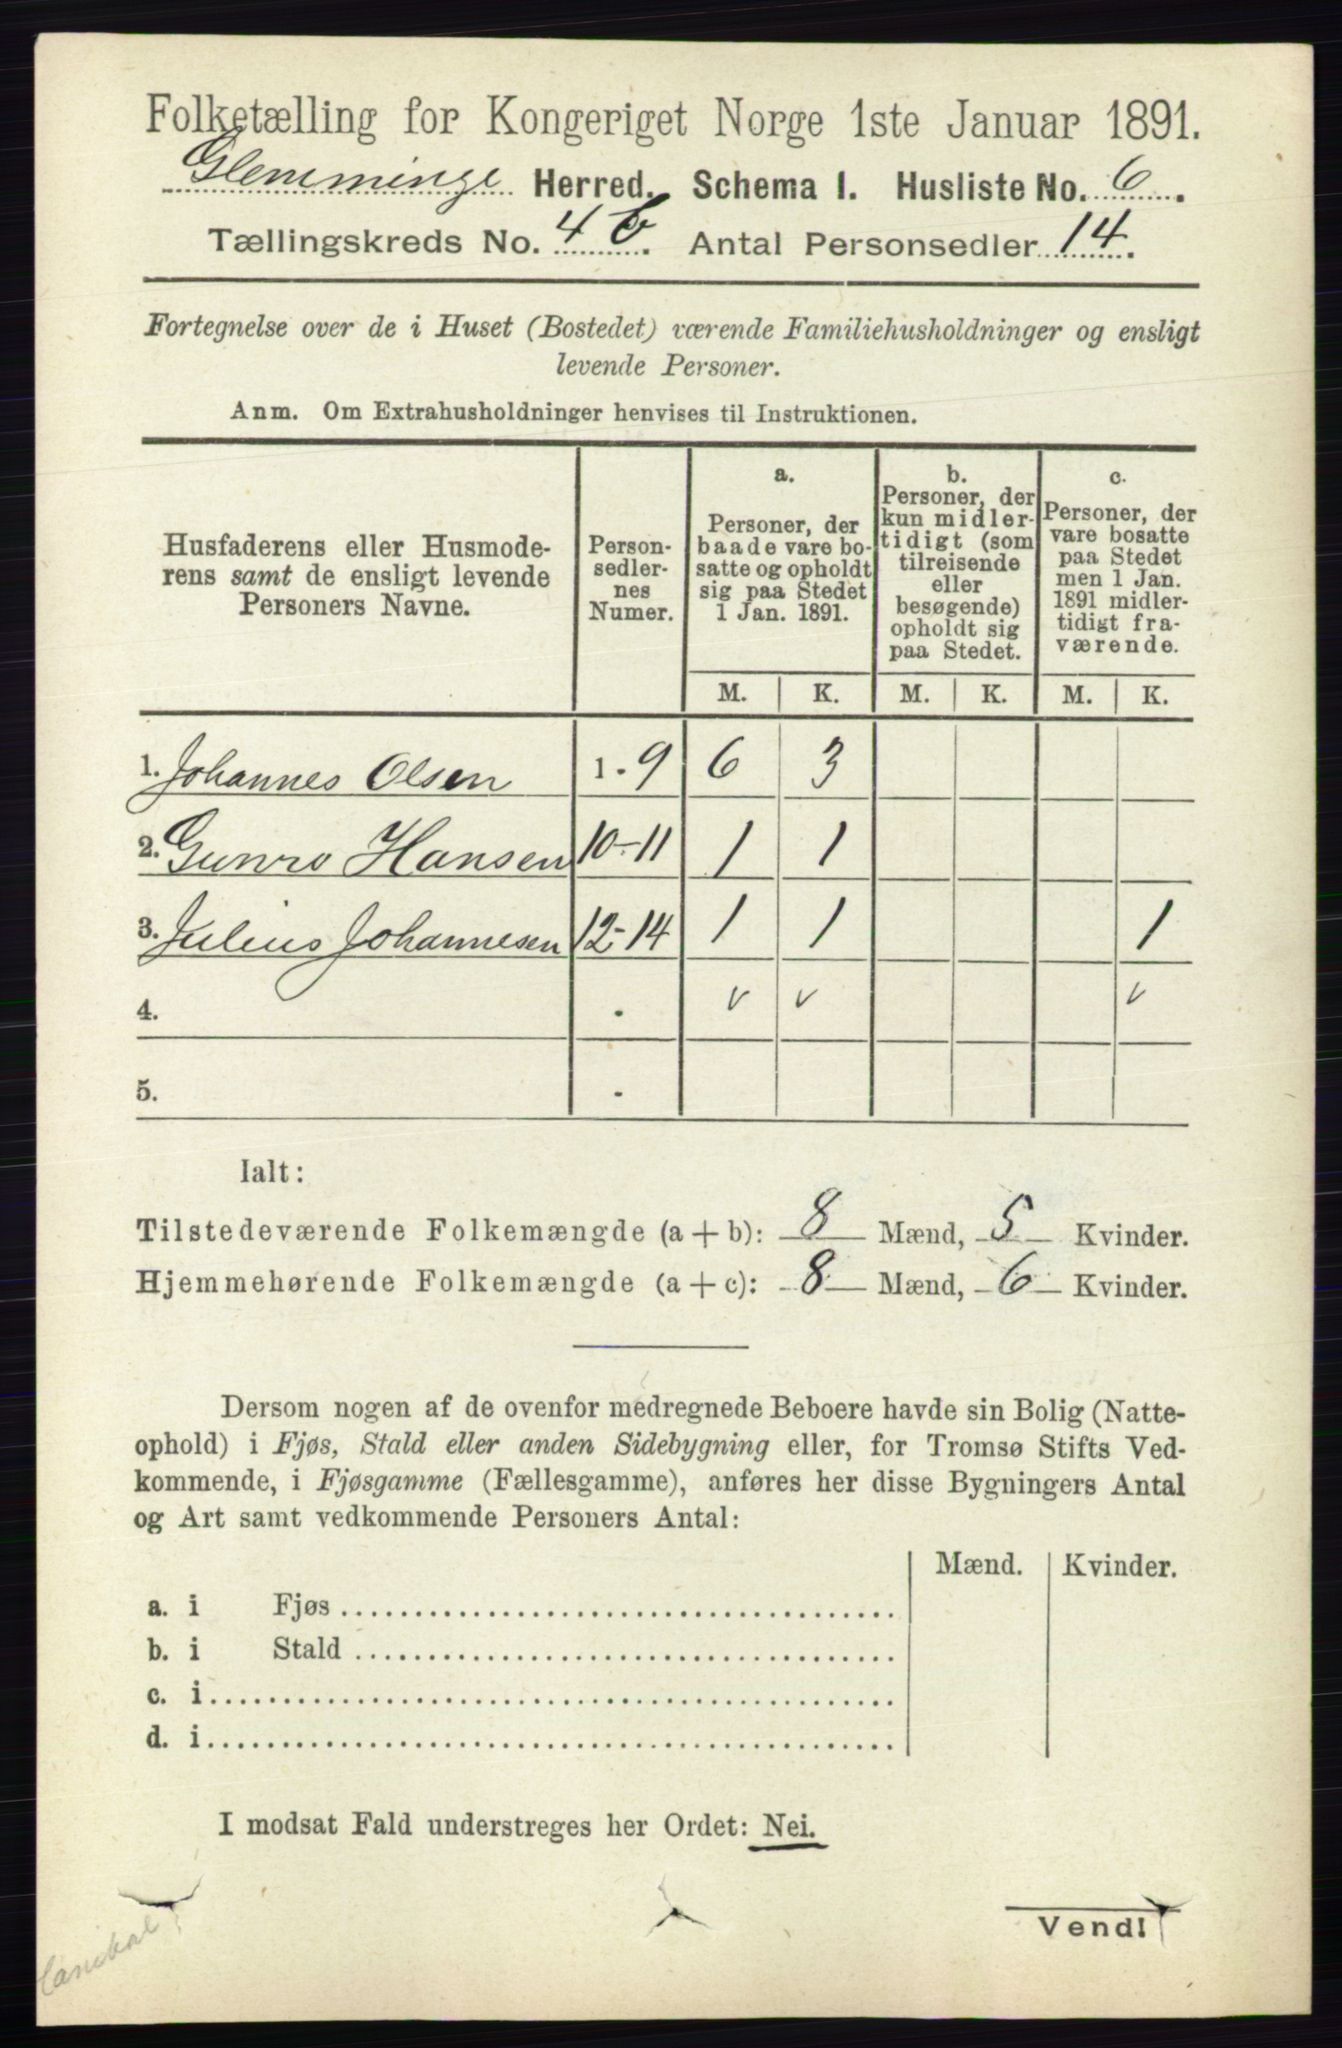 Folketælling for Kongeriget Norge 1ste Januar 1891.
Glemminge Herred. Schema I. Husliste No. 6.
Tællingskreds No. 4 b. Antal Personsedler 14.
Fortegnelse over de i Huset (Bostedet) værende Familiehusholdninger og ensligt
levende Personer.
Anm. Om Extrahusholdninger henvises til Instruktionen.
Husfaderens eller Husmode-
rens samt de ensligt levende
Personers Navne.
Person-
sedler-
nes
Numer.
a.
Personer, der
baade vare bo-
satte og opholdt
sig paa Stedet
1 Jan. 1891.
b.
Personer, der
kun midler-
tidigt (som
tilreisende
eller
besøgende)
opholdt sig
paa Stedet.
c.
Personer, der
vare bosatte
paa Stedet
men 1 Jan.
1891 midler-
tidigt fra-
værende.
M. K. M. K. M. K.
1. Johannes Olsen 1 - 9 6 3
2. Gunro Hansen 10-11 1 1
3. Julius Johannesen 12-14 1 1 1
4. v v v
5. -
Ialt:
Tilstedeværende Folkemængde (a + b): 8 Mænd, 5 Kvinder.
Hjemmehørende Folkemængde (a + c): 8 Mænd, 6 Kvinder.
Dersom nogen af de ovenfor medregnede Beboere havde sin Bolig (Natte-
ophold) i Fjøs, Stald eller anden Sidebygning eller, for Tromsø Stifts Ved-
kommende, i Fjøsgamme (Fællesgamme), anføres her disse Bygningers Antal
og Art samt vedkommende Personers Antal:
Mænd. Kvinder.
a. i Fjøs
b. i Stald
c. i
d. i
I modsat Fald understreges her Ordet: Nei.
Vend!